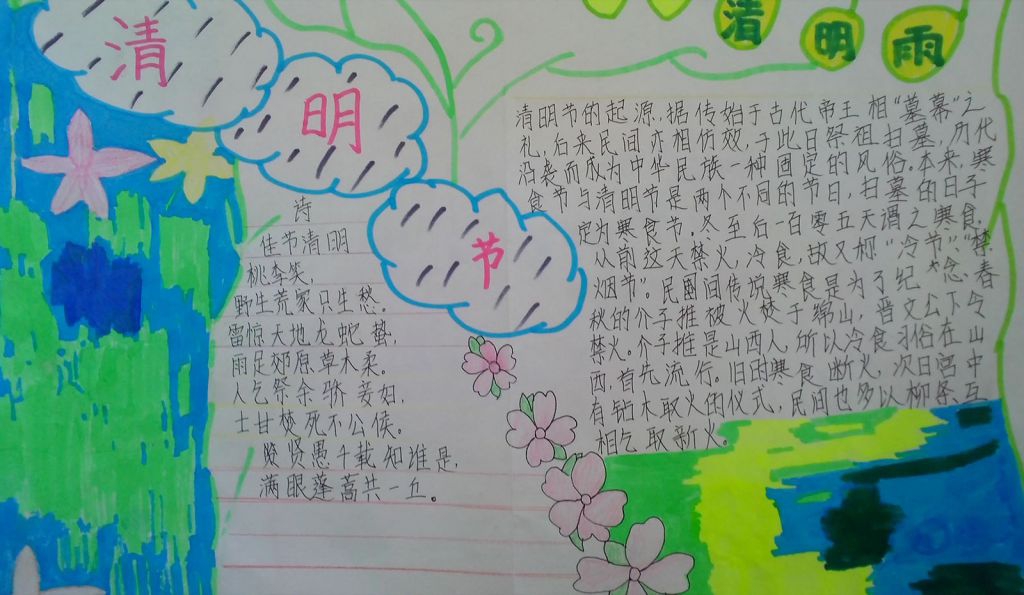 清
明
节
清 明 雨
诗
佳节清明
桃李笑,
野生荒冢只生愁。
雷惊天地龙蛇蛰,
雨足郊原草木柔。
人乞祭余骄妾妇,
士甘焚死不公候。
贤愚千载知谁是,
满眼蓬蒿共一丘。
清明节的起源,据传始于古代帝王相“墓幕”之
礼,后来民间亦相仿效,于此日祭祖扫墓,历代
沿袭而成为中华民族一种固定的风俗。本来,寒
食节与清明节是两个不同的节日,扫墓的日子
定为寒食节。冬至后一百零五天谓之寒食,
从前这天禁火,冷食,故又称“冷节”“禁
烟节”。民间传说寒食是为了纪念春
秋的介子推被火焚于绵山,晋文公下令
禁火。介子推是山西人,所以冷食习俗在山
西,首先流行。旧时寒食断火,次日宫中
有钻木取火的仪式,民间也多以柳条互
相乞取新火。